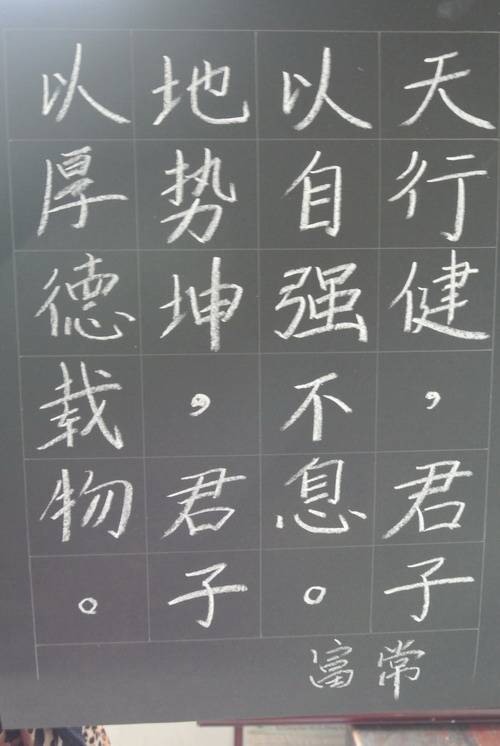 天行健，君子
以自强不息。
地势坤，君子
以厚德载物。
常富